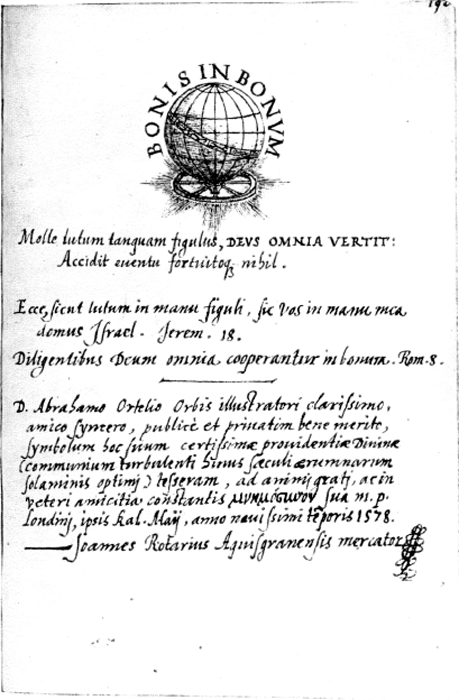 192
BONIS IN BONVM
Molle lutum tanquam figulus, DEVS OMNIA VERTIT:
Accidit euentu fortuitoq; nihil.
Ecce, sicut lutum in manu figuli, sic vos in manu mea
domus Israel. Jerem. 18.
Diligentibus Deum omnia cooperantur in bonum. Rom. 8.
D. Abrahamo Ortelio Orbis illustratori clarissimo,
amico syncero, publicè et priuatim bene merito,
symbolum hoc suum certissimæ prouidentiæ Diuinæ
(communium turbulenti huius sæculi ærumnarum
solaminis optimi) tesseram, ad animi grati, ac in
veteri amicitia constantis μνημόσυνον sua m. p.
Londinj, ipsis Kal. Maij, anno nouissimi tēporis 1578.
Joannes Rotarius Aquisgranensis mercator